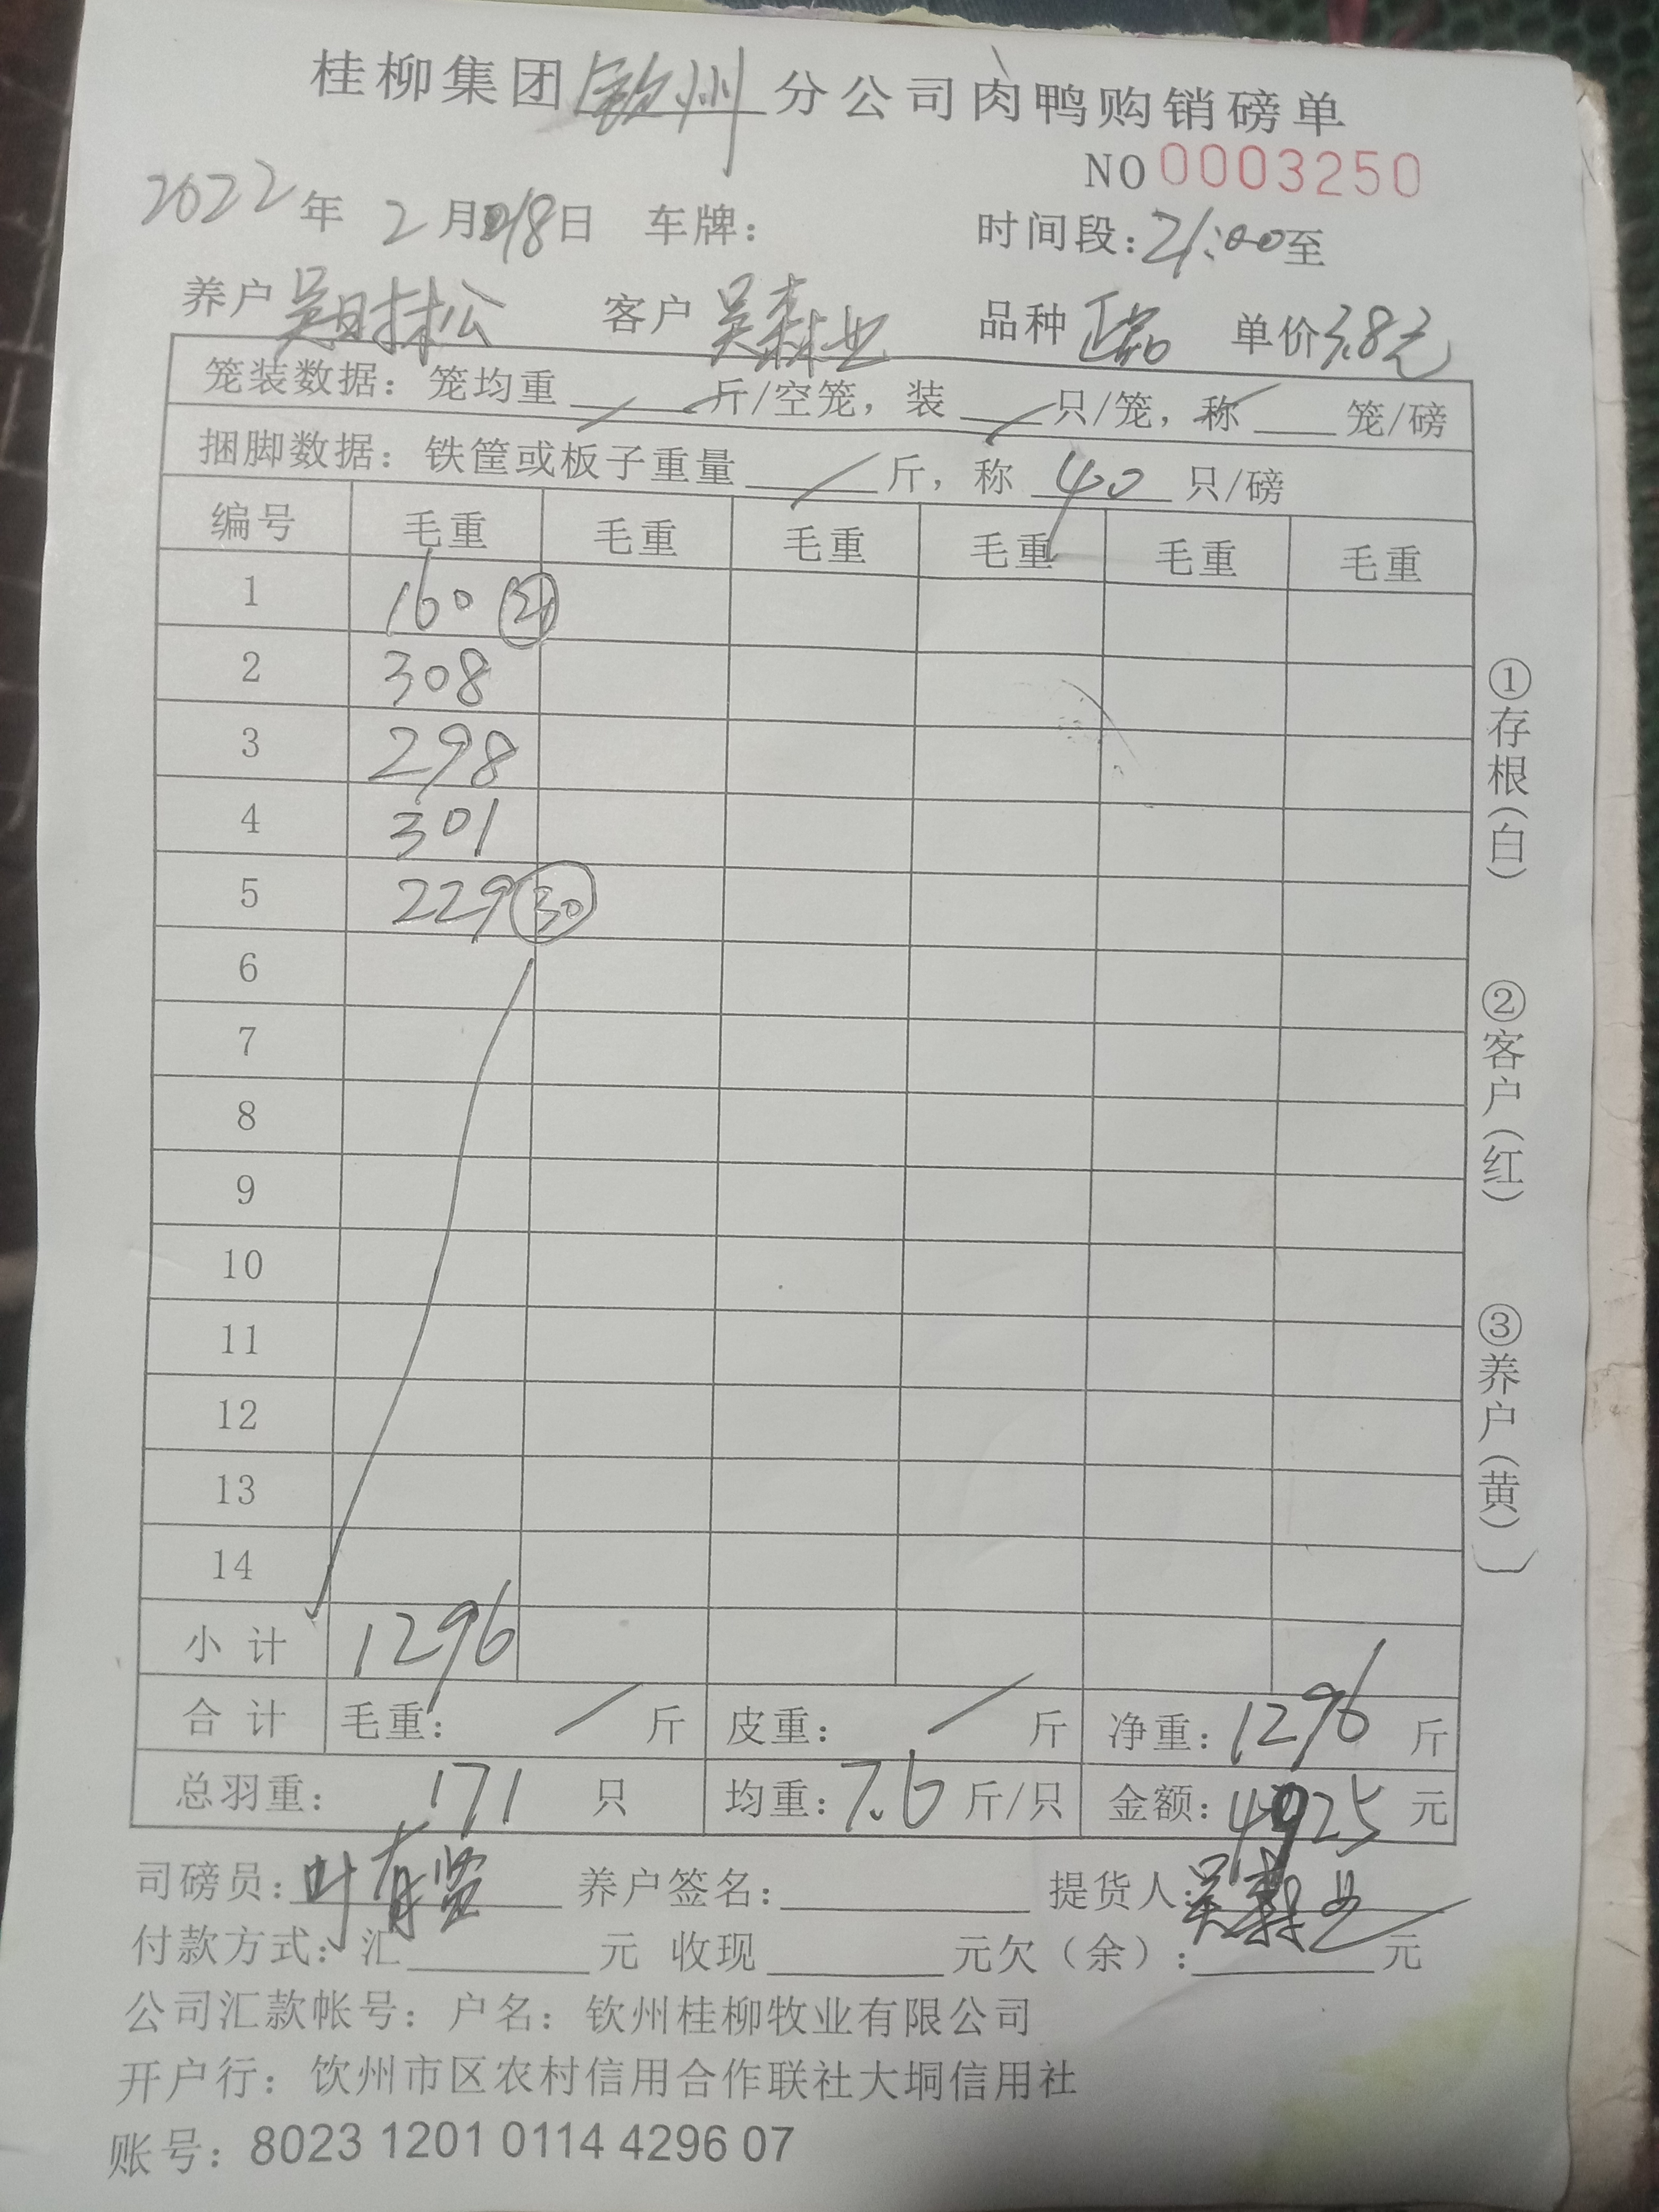 桂柳集团钦州分公司肉鸭购销磅单
NO 0003250
2022年 2月18日 车牌： 时间段：21:00至
养户 吴时松 客户 吴森业 品种 正品 单价3.8元
笼装数据：笼均重 斤/空笼，装 只/笼，称 笼/磅
捆脚数据：铁筐或板子重量 斤，称 40 只/磅
编号 毛重 毛重 毛重 毛重 毛重 毛重
1 160 21
2 308
3 298
4 301
5 229 30
6
7
8
9
10
11
12
13
14
小计 1296
合计 毛重： / 斤 皮重： / 斤 净重：1296 斤
总羽重： 171 只 均重：7.6 斤/只 金额：4925 元
司磅员：叶有坚 养户签名： 提货人：吴森业
付款方式：汇 元 收现 元欠（余）： 元
公司汇款帐号：户名：钦州桂柳牧业有限公司
开户行：钦州市区农村信用合作联社大垌信用社
账号：8023 1201 0114 4296 07
①存根（白）
②客户（红）
③养户（黄）